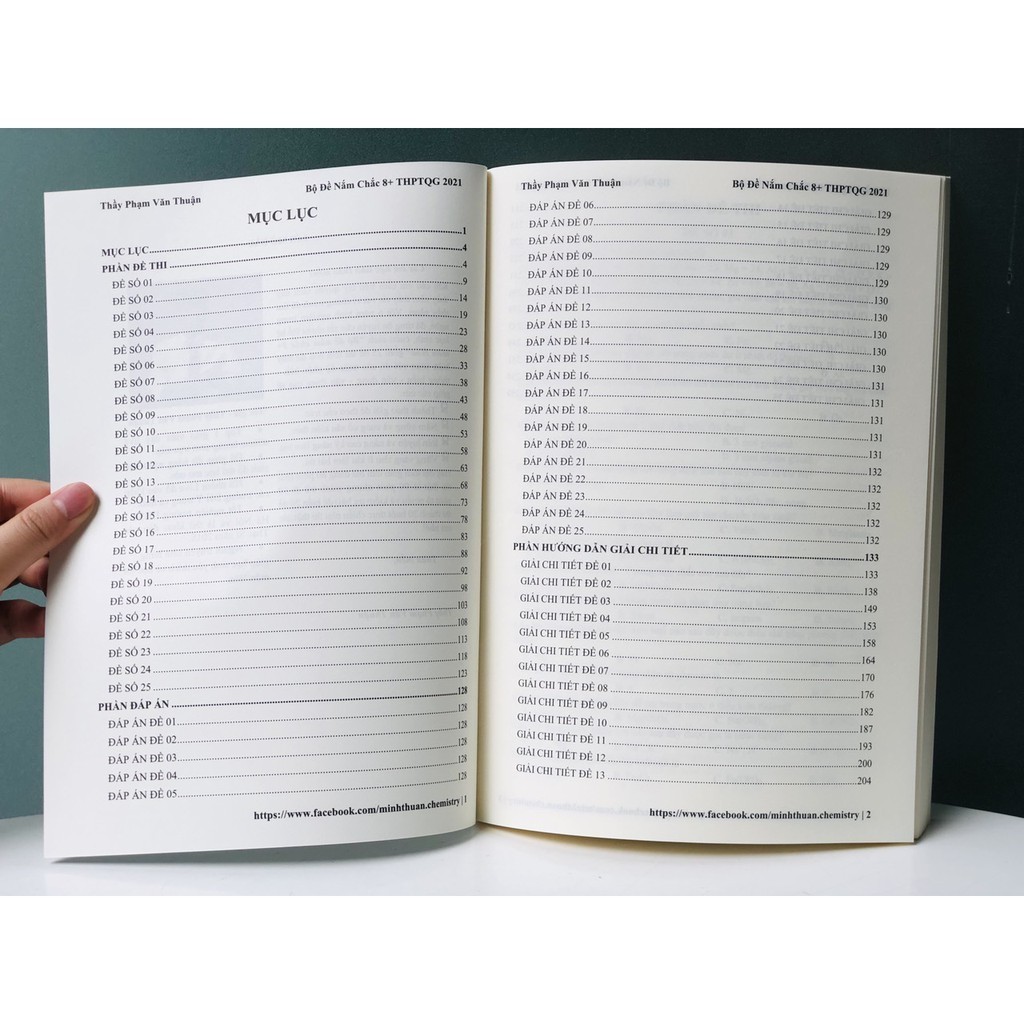 Thầy Phạm Văn Thuận Bộ Đề Nắm Chắc 8+ THPTQG 2021
MỤC LỤC
MỤC LỤC...............1
PHẦN ĐỀ THI...............4
ĐỀ SỐ 01...............4
ĐỀ SỐ 02...............9
ĐỀ SỐ 03...............14
ĐỀ SỐ 04...............19
ĐỀ SỐ 05...............23
ĐỀ SỐ 06...............28
ĐỀ SỐ 07...............33
ĐỀ SỐ 08...............38
ĐỀ SỐ 09...............43
ĐỀ SỐ 10...............48
ĐỀ SỐ 11...............53
ĐỀ SỐ 12...............58
ĐỀ SỐ 13...............63
ĐỀ SỐ 14...............68
ĐỀ SỐ 15...............73
ĐỀ SỐ 16...............78
ĐỀ SỐ 17...............83
ĐỀ SỐ 18...............88
ĐỀ SỐ 19...............92
ĐỀ SỐ 20...............98
ĐỀ SỐ 21...............103
ĐỀ SỐ 22...............108
ĐỀ SỐ 23...............113
ĐỀ SỐ 24...............118
ĐỀ SỐ 25...............123
PHẦN ĐÁP ÁN...............128
ĐÁP ÁN ĐỀ 01...............128
ĐÁP ÁN ĐỀ 02...............128
ĐÁP ÁN ĐỀ 03...............128
ĐÁP ÁN ĐỀ 04...............128
ĐÁP ÁN ĐỀ 05...............128
https://www.facebook.com/minhthuan.chemistry | 1
Thầy Phạm Văn Thuận Bộ Đề Nắm Chắc 8+ THPTQG 2021
ĐÁP ÁN ĐỀ 06...............129
ĐÁP ÁN ĐỀ 07...............129
ĐÁP ÁN ĐỀ 08...............129
ĐÁP ÁN ĐỀ 09...............129
ĐÁP ÁN ĐỀ 10...............129
ĐÁP ÁN ĐỀ 11...............130
ĐÁP ÁN ĐỀ 12...............130
ĐÁP ÁN ĐỀ 13...............130
ĐÁP ÁN ĐỀ 14...............130
ĐÁP ÁN ĐỀ 15...............130
ĐÁP ÁN ĐỀ 16...............131
ĐÁP ÁN ĐỀ 17...............131
ĐÁP ÁN ĐỀ 18...............131
ĐÁP ÁN ĐỀ 19...............131
ĐÁP ÁN ĐỀ 20...............131
ĐÁP ÁN ĐỀ 21...............132
ĐÁP ÁN ĐỀ 22...............132
ĐÁP ÁN ĐỀ 23...............132
ĐÁP ÁN ĐỀ 24...............132
ĐÁP ÁN ĐỀ 25...............132
PHẦN HƯỚNG DẪN GIẢI CHI TIẾT...............133
GIẢI CHI TIẾT ĐỀ 01...............133
GIẢI CHI TIẾT ĐỀ 02...............138
GIẢI CHI TIẾT ĐỀ 03...............149
GIẢI CHI TIẾT ĐỀ 04...............153
GIẢI CHI TIẾT ĐỀ 05...............158
GIẢI CHI TIẾT ĐỀ 06...............164
GIẢI CHI TIẾT ĐỀ 07...............170
GIẢI CHI TIẾT ĐỀ 08...............176
GIẢI CHI TIẾT ĐỀ 09...............182
GIẢI CHI TIẾT ĐỀ 10...............187
GIẢI CHI TIẾT ĐỀ 11...............193
GIẢI CHI TIẾT ĐỀ 12...............200
GIẢI CHI TIẾT ĐỀ 13...............204
https://www.facebook.com/minhthuan.chemistry | 2